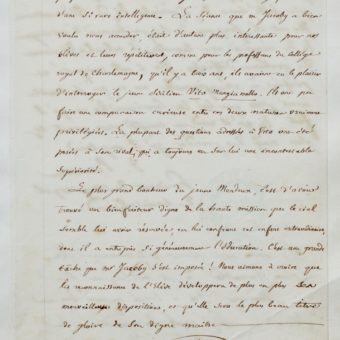 d'une si rare intelligence. La séance que M. Jacoby a bien
voulu nous accorder était d'autant plus intéressante pour nos
élèves et leurs répétiteurs, comme pour les professeurs du collège
royal de Charlemagne, qu'il y a trois ans, ils avaient eu le plaisir
d'interroger le jeune Sicilien Vito Mangiamelle. Et on a pu
faire une comparaison curieuse entre ces deux natures vraiment
privilégiées. La plupart des questions adressées à Vito ont été
posées à son rival, qui a toujours eu sur lui une incontestable
supériorité.
Le plus grand bonheur du jeune Mondeux, c'est d'avoir
trouvé un bienfaiteur digne de la haute mission que le ciel
semble lui avoir réservée, en lui confiant cet enfant extraordinaire,
dont il a entrepris si généreusement l'éducation. C'est une grande
tâche que Mr Jacoby s'est imposée ! Nous aimons à croire que
la reconnaissance de l'élève développera de plus en plus ses
merveilleuses dispositions, et qu'elle sera le plus beau titre
de gloire de son digne maître